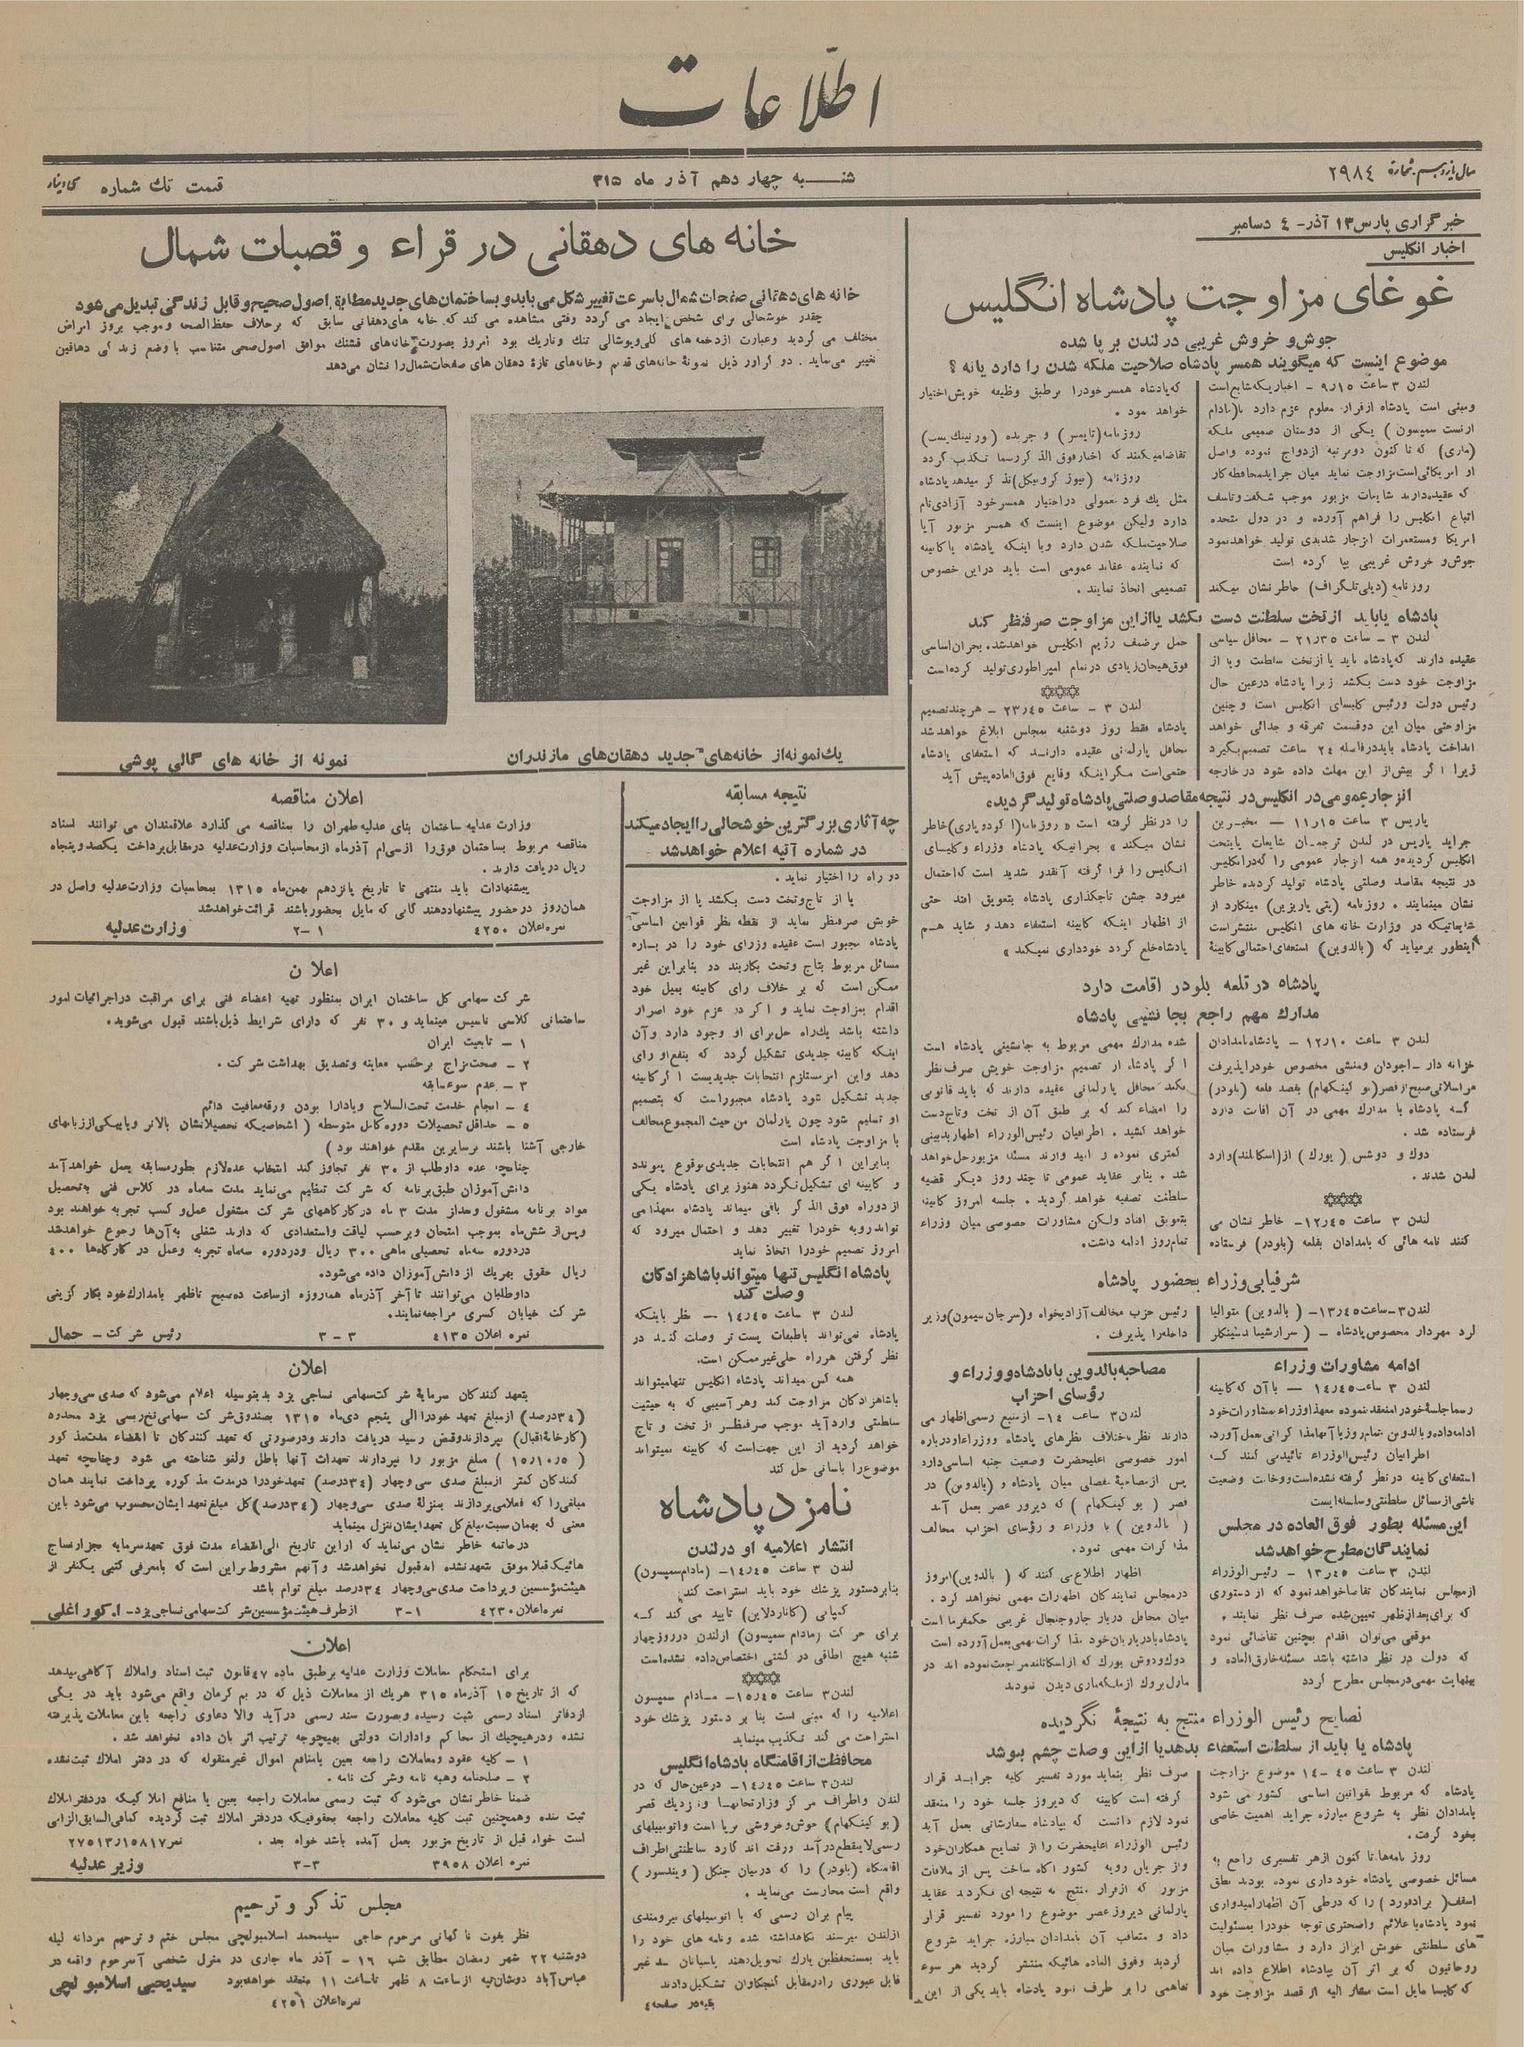 اطلاعات
سال یازدهم شماره ۲۹۸٤
شنبه چهاردهم آذر ماه ۳۱۵
قیمت تك شماره سی دینار
خبر گزاری پارس ۱۳ آذر - ٤ دسامبر
اخبار انگلیس
غوغای مزاوجت پادشاه انگلیس
جوش و خروش غریبی در لندن بر پا شده
موضوع اینست که میگویند همسر پادشاه صلاحیت ملکه شدن را دارد یا نه ؟
لندن ۳ ساعت ۹٫۱۵ - اخباریکه شایع است
ومبنی است پادشاه از قرار معلوم عزم دارد با (مادام
ارنست سمپسون) یکی از دوستان صمیمی ملکه
(ماری) که تا کنون دو مرتبه ازدواج نموده واصل
او امریکائی است مزاوجت نماید میان جراید محافظه کار
که عقیده دارند شایعات مزبور موجب شگفت و تاسف
اتباع انگلیس را فراهم آورده و در دول متحده
امریکا ومستعمرات انزجار شدیدی تولید خواهد نمود
جوش و خروش غریبی بپا کرده است
روزنامه (دیلی تلگراف) خاطر نشان میکند
که پادشاه همسر خود را بر طبق وظیفه خویش اختیار
خواهد نمود .
روزنامه (تایمس) و جریده (ورنینك پست)
تقاضا میکنند که اخبار فوق الذکر رسما تکذیب گردد
روزنامه (نیوز کرونیکل) تذکر میدهد پادشاه
مثل یك فرد معمولی در اختیار همسر خود آزادی تام
دارد ولیکن موضوع اینست که همسر مزبور آیا
صلاحیت ملکه شدن دارد و یا اینکه پادشاه با کابینه
که نماینده عقاید عمومی است باید در این خصوص
تصمیمی اتخاذ نمایند .
پادشاه یا باید از تخت سلطنت دست بکشد یا از این مزاوجت صرفنظر کند
لندن ۳ - ساعت ۲۱٫۳۵ - محافل سیاسی
عقیده دارند که پادشاه باید یا از تخت سلطنت ویا از
مزاوجت خود دست بکشد زیرا پادشاه در عین حال
رئیس دولت ورئیس کلیسای انگلیس است و چنین
مزاوجتی میان این دو قسمت تفرقه و جدائی خواهد
انداخت پادشاه باید در فاصله ۲٤ ساعت تصمیم بگیرد
زیرا اگر بیش از این مهلت داده شود در خارجه
حمل بر ضعف رژیم انگلیس خواهد شد. بحران اساسی
فوق هیجان زیادی در تمام امپراطوری تولید کرده است
لندن ۳ - ساعت ۲۳٫٤۵ - هر چند تصمیم
پادشاه فقط روز دوشنبه بمجلس ابلاغ خواهد شد
محافل پارلمانی عقیده دارند که استعفای پادشاه
حتمی است مگر اینکه وقایع فوق العاده پیش آید
انزجار عمومی در انگلیس در نتیجه مقاصد وصلتی پادشاه تولید گردیده
پاریس ۳ ساعت ۱۱٫۱۵ - مخبرین
جراید پاریس در لندن ترجمان شایعات پایتخت
انگلیس گردیده و همه انزجار عمومی را که در انگلیس
در نتیجه مقاصد وصلتی پادشاه تولید گردیده خاطر
نشان مینمایند . روزنامه (پتی پاریزین) مینگارد از
شایعاتیکه در وزارت خانه های انگلیس منتشر است
اینطور برمیاید که (بالدوین) استعفای احتمالی کابینهٔ
را در نظر گرفته است « روزنامه (اکودوپاری) خاطر
نشان میکند » بحرانیکه پادشاه وزراء و کلیسای
انگلیس را فرا گرفته آنقدر شدید است که احتمال
میرود جشن تاجگذاری پادشاه بتعویق افتد حتی
از اظهار اینکه کابینه استعفاء دهد و شاید هم
پادشاه خلع گردد خودداری نمیکند »
پادشاه در قلعه بلودر اقامت دارد
مدارك مهم راجع بجانشینی پادشاه
لندن ۳ ساعت ۱۲٫۱۰ - پادشاه بامدادان
خزانه دار - اجودان ومنشی مخصوص خود را پذیرفت
مراسلاتی صبح از قصر (بوکینگهام) بقصد قلعه (بلودر)
که پادشاه با مدارك مهمی در آن اقامت دارد
فرستاده شد .
دوك و دوشس (یورك) از (اسکاتلند) وارد
لندن شدند .
لندن ۳ ساعت ۱۲٫٤۵ - خاطر نشان می
کنند نامه هائی که بامدادان بقلعه (بلودر) فرستاده
شده مدارك مهمی مربوط به جانشینی پادشاه است
اگر پادشاه از تصمیم مزاوجت خویش صرف نظر
نکند محافل پارلمانی عقیده دارند که باید قانونی
را امضاء کند که بر طبق آن از تخت و تاج دست
خواهد کشید . اطرافیان رئیس الوزراء اظهار بدبینی
کمتری نموده و امید وارند مسئله مزبور حل خواهد
شد . بنابر عقاید عمومی تا چند روز دیگر قضیه
سلطنت تصفیه خواهد گردید . جلسه امروز کابینه
بتعویق افتاد ولیکن مشاورات خصوصی میان وزراء
تمام روز ادامه داشت.
شرفیابی وزراء بحضور پادشاه
لندن ۳-ساعت ۱۳٫٤۵-( بالدوین ) متوالیا
لرد مهردار مخصوص پادشاه - (
رئیس حزب مخالف آزادیخواه و (سر جان سیمون) وزیر
داخله را پذیرفت .
ادامه مشاورات وزراء
لندن ۳ ساعت ۱٤٫٤۵ - با آن که کابینه
رسما جلسهٔ خود را منعقد ننموده معهذا وزراء مشاورات خود
ادامه داده و بالدوین تمام روز با آنها مذاکراتی بعمل آورد.
اطرافیان رئیس الوزراء تائید می کنند که
استعفای کابینه در نظر گرفته نشده است و وخامت وضعیت
ناشی از مسائل سلطنتی و سلسله ایست
این مسئله بطور فوق العاده در مجلس
نمایندگان مطرح خواهد شد
لندن ۳ ساعت ۱۳٫٤۵ - رئیس الوزراء
از مجلس نمایندگان تقاضا خواهد نمود که از دستوری
که برای بعد از ظهر تعیین شده صرف نظر نمایند .
موقعی می توان اقدام بچنین تقاضائی نمود
که دولت در نظر داشته باشد مسئله خارق العاده و
بینهایت مهمی در مجلس مطرح گردد
مصاحبه بالدوین با پادشاه و وزراء و
رؤسای احزاب
لندن ۳ ساعت ۱٤- از منبع رسمی اظهار می
دارند نظر باختلاف نظرهای پادشاه و وزراء درباره
امور خصوصی اعلیحضرت وضعیت جنبه اساسی دارد
پس از مصاحبهٔ مفصلی میان پادشاه و (بالدوین) در
قصر ( بوکینگهام ) که دیروز عصر بعمل آمد
( بالدوین ) با وزراء و رؤسای احزاب مخالف
مذاکرات مهمی نمود.
اظهار اطلاع می کنند که ( بالدوین) امروز
در مجلس نمایندگان اظهارات مهمی نخواهد کرد .
میان محافل دربار جار و جنجال غریبی حکمفرما است
پادشاه با درباریان خود مذاکرات مهمی بعمل آورده است
دوك و دوشس یورك که از اسکاتلند مراجعت نموده اند در
مارل بروك از ملکه ماری دیدن نمودند
نصایح رئیس الوزراء منتج به نتیجهٔ نگردیده
پادشاه یا باید از سلطنت استعفاء بدهد یا از این وصلت چشم بپوشد
لندن ۳ ساعت ٤۵-۱٤ موضوع مزاوجت
پادشاه که مربوط بقوانین اساسی کشور می شود
بامدادان نظر به شروع مبارزه جراید اهمیت خاصی
بخود گرفت.
روزنامه ها تا کنون از هر تفسیری راجع به
مسائل خصوصی پادشاه خود داری نموده بودند نطق
اسقف ( برادفورد ) را که در طی آن اظهار امیدواری
نمود پادشاه با علائم واضحتری توجه خود را بمسئولیت
های سلطنتی خویش ابراز دارد و مشاورات میان
روحانیون که بر اثر آن بپادشاه اطلاع داده اند
که کلیسا مایل است مشار الیه از قصد مزاوجت خود
صرف نظر بنماید مورد تفسیر کلیه جراید قرار
گرفته است کابینه که دیروز جلسه خود را منعقد
نمود لازم دانست که بپادشاه سفارشاتی بعمل آید
رئیس الوزراء اعلیحضرت را از نصایح همکاران خود
و از جریان رویه کشور آگاه ساخت پس از ملاقات
مزبور که از قرار منتج به نتیجه ای نگردید عقاید
پارلمانی دیروز عصر موضوع را مورد تفسیر قرار
داد و متعاقب آن بامدادان مبارزه جراید شروع
گردید وفوق العاده هائیکه منتشر گردید هر سوء
تفاهمی را بر طرف نمود پادشاه باید یکی از این
خانه های دهقانی در قراء و قصبات شمال
خانه های دهقانی صفحات شمال با سرعت تغییر شکل می یابد و بساختمان های جدید مطابق اصول صحیح و قابل زندگی تبدیل می شود
چقدر خوشحالی برای شخص ایجاد می گردد وقتی مشاهده می کند که خانه های دهقانی سابق که بر خلاف حفظ الصحه و موجب بروز امراض
مختلف می گردید وعبارت از دخمه های گلی و پوشالی تنك و تاریك بود امروز بصورت خانه های قشنك موافق اصول صحی متناسب با وضع زندگی دهاقین
تغییر می نماید . دو گراور ذیل نمونهٔ خانه های قدیم و خانه های تازهٔ دهقان های صفحات شمال را نشان می دهد
یك نمونه از خانه های جدید دهقان های مازندران
نمونه از خانه های گالی پوشی
نتیجه مسابقه
چه آثاری بزرگترین خوشحالی را ایجاد میکند
در شماره آتیه اعلام خواهد شد
دو راه را اختیار نماید .
یا از تاج و تخت دست بکشد یا از مزاوجت
خویش صرفنظر نماید از نقطه نظر قوانین اساسی
پادشاه مجبور است عقیده وزرای خود را در باره
مسائل مربوط بتاج وتخت بکار بندد بنابراین غیر
ممکن است که بر خلاف رای کابینه بمیل خود
اقدام بمزاوجت نماید و اگر در عزم خود اصرار
داشته باشد یك راه حل برای او وجود دارد وآن
اینکه کابینه جدیدی تشکیل گردد که بنفع او رای
دهد واین امر مستلزم انتخابات جدیدیست اگر کابینه
جدید تشکیل شود پادشاه مجبور است که بتصمیم
او تسلیم شود چون پارلمان من حیث المجموع مخالف
با مزاوجت پادشاه است
بنابراین اگر هم انتخابات جدیدی بوقوع پیوندد
و کابینه ای تشکیل نگردد هنوز برای پادشاه یکی
از دو راه فوق الذکر باقی میماند پادشاه معهذا می
تواند رویه خود را تغییر دهد و احتمال میرود که
امروز تصمیم خود را اتخاذ نماید
پادشاه انگلیس تنها میتواند با شاهزادگان
وصلت کند
لندن ۳ ساعت ۱٤٫٤۵ - نظر باینکه
پادشاه نمی تواند با طبقات پست تر وصلت کند در
نظر گرفتن هر راه حلی غیر ممکن است.
همه کس میداند پادشاه انگلیس تنها میتواند
با شاهزادگان مزاوجت کند وهر آسیبی که به حیثیت
سلطنتی وارد آید موجب صرفنظر از تخت و تاج
خواهد گردید از این جهت است که کابینه نمیتواند
موضوع را بآسانی حل کند
نامزد پادشاه
انتشار اعلامیه او در لندن
لندن ۳ ساعت ۱٤٫٤۵-(مادام سمپسون)
بنابر دستور پزشك خود باید استراحت کند
کمپانی (کاناردلاین) تایید می کند که
برای حرکت (مادام سمپسون) از لندن در روز چهار
شنبه هیچ اطاقی در کشتی اختصاص داده نشده است
لندن ۳ ساعت ۱۵٫٤۵- مادام سمپسون
اعلامیه را که مبنی است بنا بر دستور پزشك خود
استراحت می کند تکذیب مینماید
محافظت از اقامتگاه پادشاه انگلیس
لندن ۳ ساعت ۱٤٫٤۵- در عین حال که در
لندن واطراف مرکز وزارتخانه ها ونزدیك قصر
(بوکینگهام) جوش و خروشی برپا است واتومبیلهای
رسمی لاینقطع در آمد ورفت اند گارد سلطنتی اطراف
اقامتگاه (بلودر) را که در میان جنگل (ویندسور)
واقع است محارست می نماید .
پیام بران رسمی که با اتومبیلهای نیرومندی
از لندن میرسند نگاهداشته شده و نامه های خود را
باید بمستحفظین پارك تحویل دهند پاسبانان سد غیر
قابل عبوری را در مقابل کنجکاوان تشکیل دادند
بقیه در صفحه ٤
اعلان مناقصه
وزارت عدلیه ساختمان بنای عدلیه طهران را بمناقصه می گذارد علاقمندان می توانند اسناد
مناقصه مربوط بساختمان فوق را از سی ام آذر ماه از محاسبات وزارت عدلیه در مقابل پرداخت یکصد و پنجاه
ریال دریافت دارند .
پیشنهادات باید منتهی تا تاریخ پانزدهم بهمن ماه ۱۳۱۵ بمحاسبات وزارت عدلیه واصل در
همان روز در حضور پیشنهاد دهندگانی که مایل بحضور باشند قرائت خواهد شد
نمره اعلان ٤۲۵۰ ۱-۲ وزارت عدلیه
اعلان
شرکت سهامی کل ساختمان ایران بمنظور تهیه اعضاء فنی برای مراقبت در اجرائیات امور
ساختمانی کلاسی تاسیس مینماید و ۳۰ نفر که دارای شرایط ذیل باشند قبول می شوید.
۱ - تابعیت ایران
۲ - صحت مزاج بر حسب معاینه وتصدیق بهداشت شرکت .
۳ - عدم سوء سابقه
٤ - انجام خدمت تحت السلاح ویا دارا بودن ورقه معافیت دائم
۵ - حداقل تحصیلات دوره کامل متوسطه ( اشخاصیکه تحصیلاتشان بالاتر ویا بیکی از زبانهای
خارجی آشنا باشند بر سایرین مقدم خواهند بود )
چنانچه عده داوطلب از ۳۰ نفر تجاوز کند انتخاب عده لازم بطور مسابقه بعمل خواهد آمد
دانش آموزان طبق برنامه که شرکت تنظیم می نماید مدت سه ماه در کلاس فنی به تحصیل
مواد برنامه مشغول و بعد از مدت ۳ ماه در کارگاههای شرکت مشغول عمل و کسب تجربه خواهند بود
و پس از شش ماه بموجب امتحان و بر حسب لیاقت واستعدادی که دارند شغلی به آن ها رجوع خواهد شد
در دوره سه ماه تحصیلی ماهی ۳۰۰ ریال ودر دوره سه ماه تجربه وعمل در کارگاه ها ٤۰۰
ریال حقوق بهر یك از دانش آموزان داده می شود.
داوطلبان می توانند تا آخر آذر ماه همه روزه از ساعت ده صبح تا ظهر با مدارك خود بکارگزینی
شرکت خیابان کسری مراجعه نمایند.
نمره اعلان ٤۱۳۵ ۳-۳ رئیس شرکت - حمال
اعلان
بتعهد کنندگان سرمایهٔ شرکت سهامی نساجی یزد بدینوسیله اعلام می شود که صدی سی و چهار
(۳٤درصد) از مبلغ تعهد خود را الی پنجم دی ماه ۱۳۱۵ بصندوق شرکت سهامی نخ ریسی یزد محدوده
(کارخانهٔ اقبال) بپردازند وقبض رسید دریافت دارند ودر صورتی که تعهد کنندگان تا انقضاء مدت مذکور
(۱۵٫۱۰٫۵) مبلغ مزبور را نپردازند تعهدات آنها باطل ولغو شناخته می شود وچنانچه تعهد
کنندگان کمتر از مبلغ صدی سی و چهار (۳٤درصد) تعهد خود را در مدت مذکوره پرداخت نمایند همان
مبلغی را که فعلا می پردازند بمنزلهٔ صدی سی و چهار (۳٤درصد) کل مبلغ تعهد ایشان محسوب می شود باین
معنی که بهمان نسبت مبلغ کل تعهد ایشان تنزل مینماید
در خاتمه خاطر نشان می نماید که از این تاریخ الی انقضاء مدت فوق تعهد سرمایه مجزا از اشخا
صائیکه قبلا موفق بتعهد نشده اند قبول نخواهد شد وآنهم مشروط بر این است که با معرفی کتبی یکنفر از
هیئت مؤسسین و پرداخت صدی سی و چهار ۳٤درصد مبلغ توام باشد
نمره اعلان ٤۲۳۰ ۱-۳ از طرف هیئت مؤسسین شرکت سهامی نساجی یزد - ا. کوراغلی
اعلان
برای استحکام معاملات وزارت عدلیه بر طبق ماده ٤۷ قانون ثبت اسناد و املاك آگاهی میدهد
که از تاریخ ۱۵ آذر ماه ۳۱۵ هریك از معاملات ذیل که در بم کرمان واقع می شود باید در یکی
از دفاتر اسناد رسمی ثبت رسیده وبصورت سند رسمی در آید والا دعاوی راجعه باین معاملات پذیرفته
نشده ودر هیچیك از محاکم وادارات دولتی بهیچوجه ترتیب اثر بآن داده نخواهد شد .
۱ - کلیه عقود ومعاملات راجعه بعین یا منافع اموال غیر منقوله که در دفتر املاك ثبت نشده
۲ - صلحنامه وهبه نامه وشرکت نامه .
ضمنا خاطر نشان می شود که ثبت رسمی معاملات راجعه بعین یا منافع املاکیکه در دفتر املاك
ثبت شده وهمچنین ثبت کلیه معاملات راجعه بحقوقیکه در دفتر املاك ثبت گردیده کمافی السابق الزامی
است خواه قبل از تاریخ مزبور بعمل آمده باشد خواه بعد . نمره ۲۷۵۱۳٫۱۵۸۱۷
نمره اعلان ۳۹۵۸ ۳-۳ وزیر عدلیه
مجلس تذکر و ترحیم
نظر بفوت ناگهانی مرحوم حاجی سید محمد اسلامبولچی مجلس ختم و ترحیم مردانه لیله
دوشنبه ۲۲ شهر رمضان مطابق شب ۱۶ - آذر ماه جاری در منزل شخصی آنمرحوم واقعه در
عباس آباد دوشان تپه از ساعت ۸ ظهر تا ساعت ۱۱ منعقد خواهد بود سید یحیی اسلامبولچی
نمره اعلان ٤۲۵۱